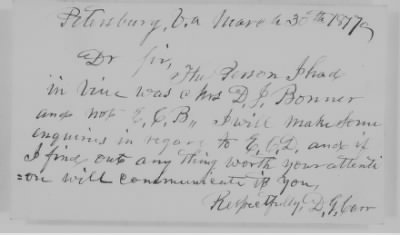 Petersburg, Va March 30th 1877
Dr Sir,
The Person I had
in View was Chs D. J. Bonner
and not E. C. B,, I will make some
enquires in regard to E. C. L. and if
I find out any thing worth your attenti
=on will communicate it you,
Respectfully, D. G. Carr